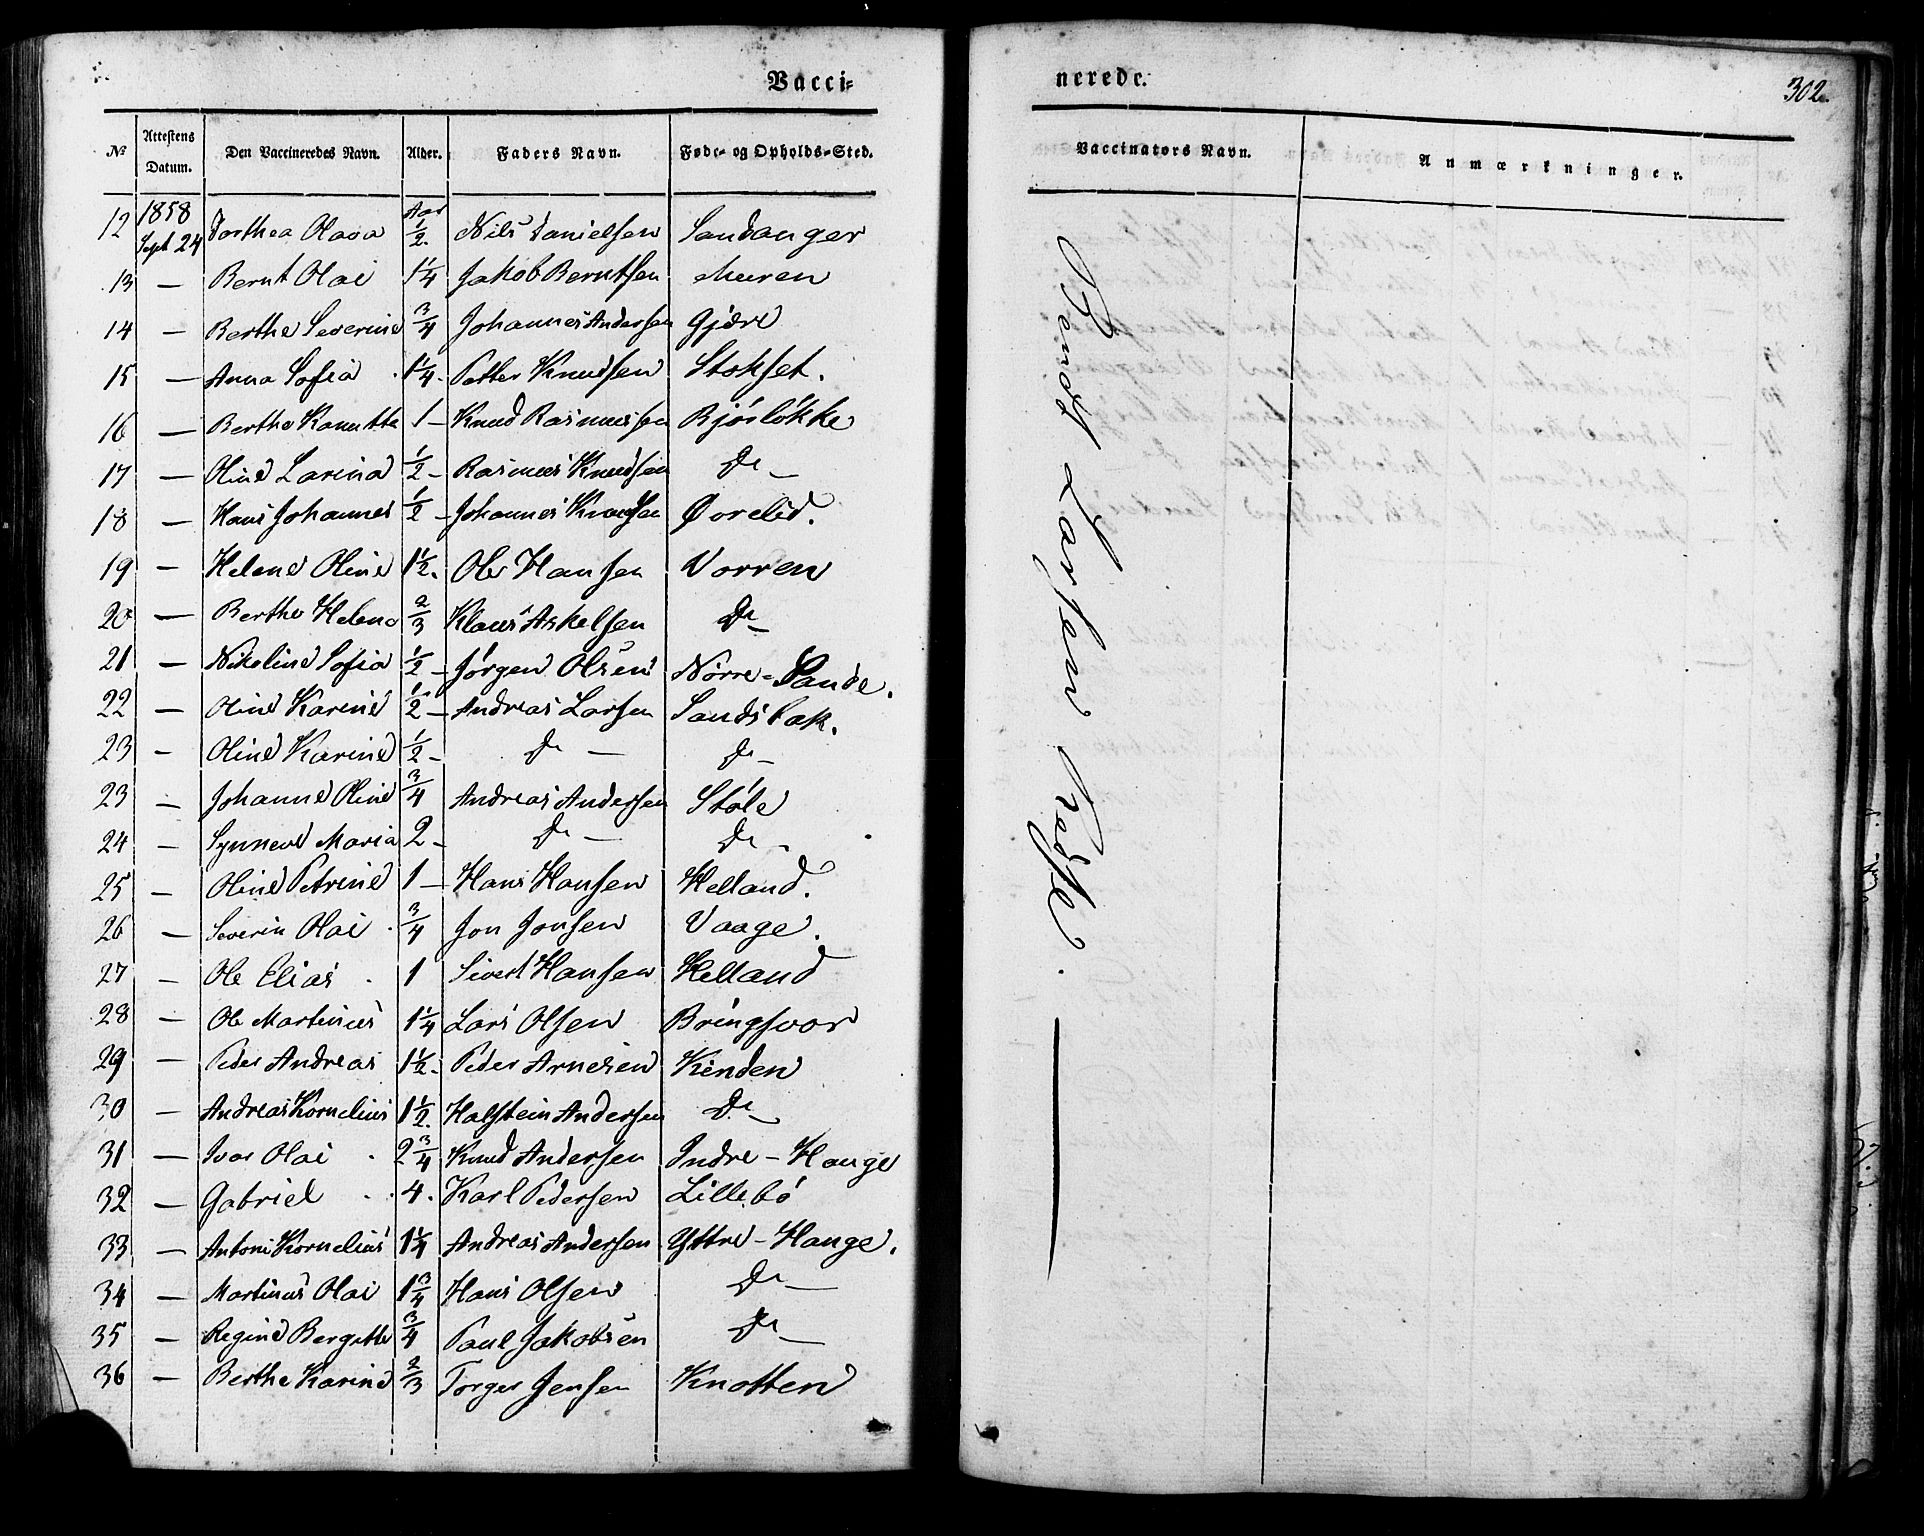 Vacci-
nerede.
302.
№ Attestens Datum. Den Vaccineredes Navn. Alder. Faders Navn. Føde- og Opholds-Sted. Vaccinators Navn. Anmærkninger.
12 1858 Sept 24 Dorthea Olava Aar ½. Nils Danielsen Sandanger
13 — Bernt Olai 1¼ Jakob Berntsen Muren
14 — Berthe Severine ¾ Johannes Andersen Gjære
15 — Anna Sofia 1¼. Petter Knudsen Stokset.
16 — Berthe Kanutta 1 — Knud Rasmussen Bjørlökke
17 — Oline Larina ½ — Rasmus Knudsen Do —
18 — Hans Johannes ½ — Johannes Knudsen Øvrelid.
19 — Helene Oline 1½. Ole Hansen Vorren
20 — Berthe Helene ⅔ Klaus Askelsen Do —
21 — Nikoline Sofia ½ — Jørgen Olsen Nörre-Sande.
22 — Oline Karine ½ — Andreas Larsen Sandsbak.
23 — Oline Karine ½ — Do — Do —
23 — Johanne Oline ¾ Andreas Andersen Støle
24 — Synneve Maria 2 — Do — Do —
25 — Oline Petrine 1 — Hans Hansen Helland.
26 — Severin Olai ¾ Jon Jonsen Vaage.
27 — Ole Elias 1 Sivert Hansen Helland
28 — Ole Martinus 1¼ Lars Olsen Bringsvor
29 — Peder Andreas 1½. Peder Arnesen Kinden
30 — Andreas Kornelius 1½. Halstein Andersen Do —
31 — Ivar Olai 2¾ Knud Andersen Indre-Hauge
32 — Gabriel 4. Karl Pedersen Lillebö
33 — Antoni Kornelius 1¼ Andreas Andersen Yttre-Hauge.
34 — Martinus Olai 1¾ Hans Olsen Do —
35 — Regine Bergitte ¾ Paul Jakobsen Do —
36 — Berthe Karine ⅔ Torger Jensen Knotten
Bendt Larsen